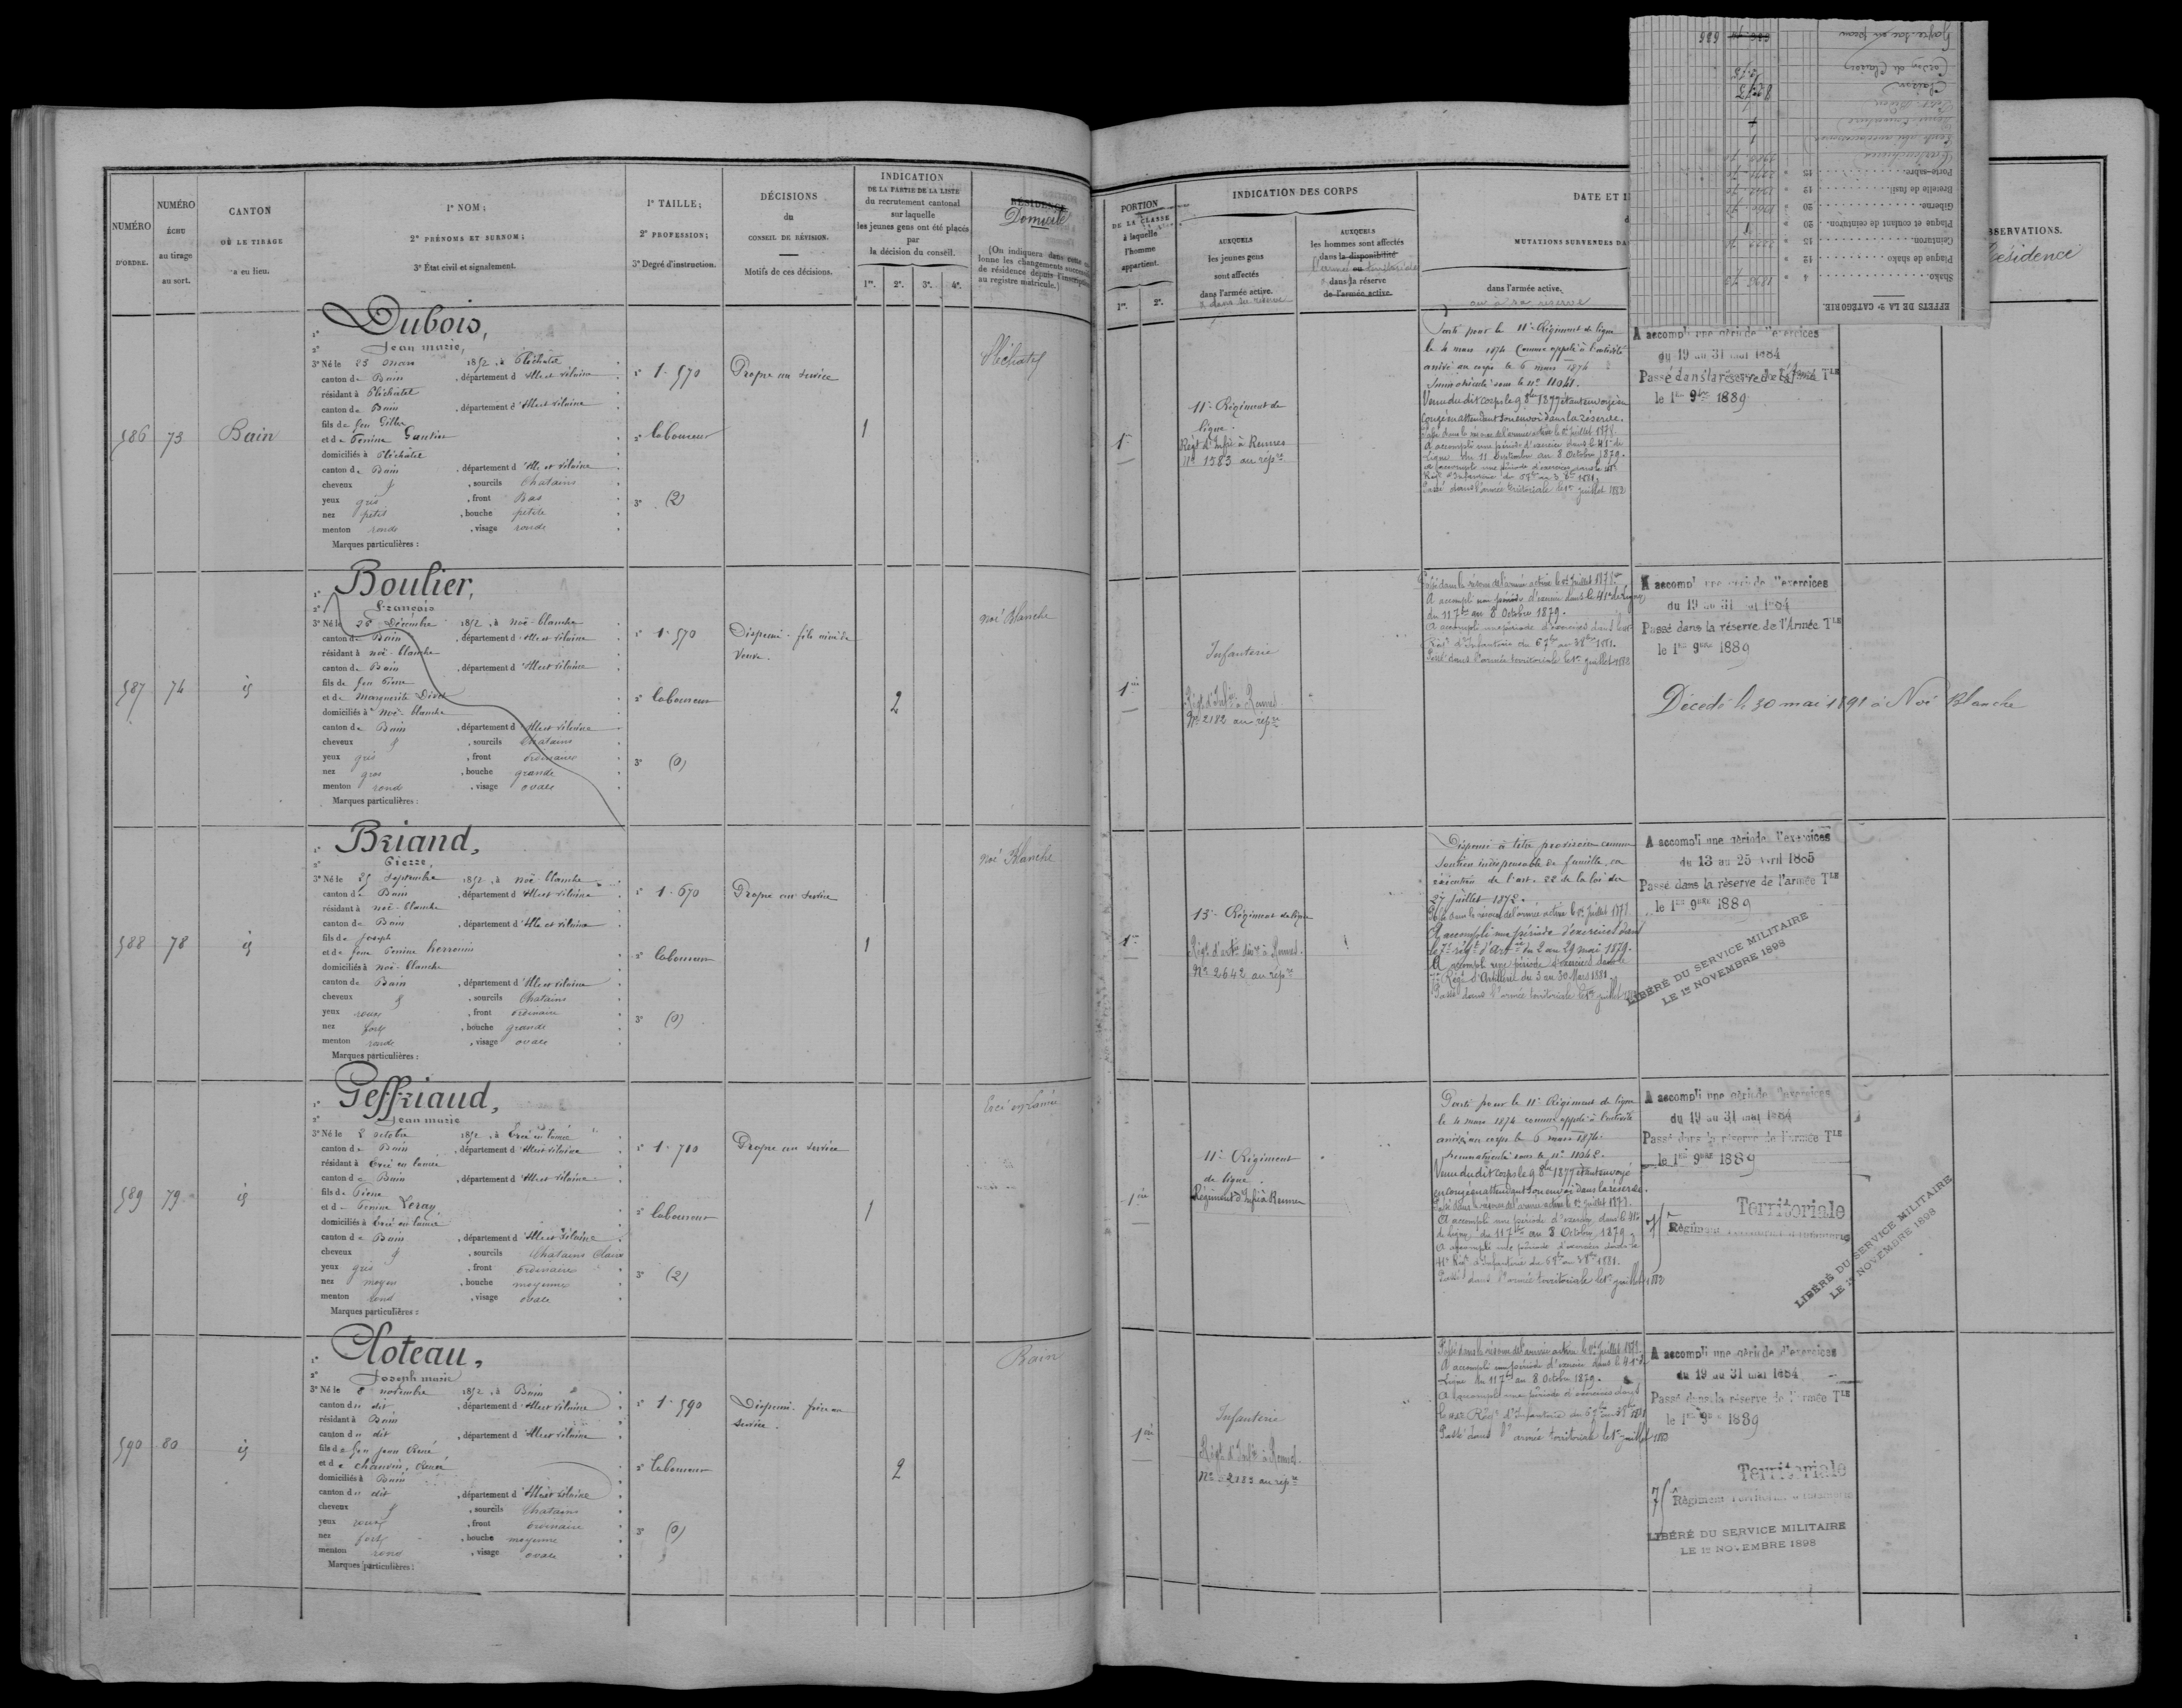 NUMÉRO
D'ORDRE.
NUMÉRO
ÉCHU
au tirage
au sort.
CANTON
OÙ LE TIRAGE
a eu lieu.
1º NOM;
2º PRÉNOMS ET SURNOM;
3º État civil et signalement.
1º TAILLE;
2º PROFESSION;
3º Degré d'instruction.
DÉCISIONS
du
CONSEIL DE RÉVISION.
Motifs de ces décisions.
INDICATION
DE LA PARTIE DE LA LISTE
du recrutement cantonal
sur laquelle
les jeunes gens ont été placés
par
la décision du conseil.
1re. 2e. 3e. 4e.
RÉSIDENCE
Domicile
(On indiquera dans cette
lonne les changements
de résidence depuis l'inscription
au registre matricule.)
586
73
Bain
1º Dubois,
2º Jean marie,
3º Né le 25 mars 1852, à Pléchatel
canton de Bain, département d'Ille et Vilaine
résidant à Pléchatel
canton de Bain, département d'Ille et Vilaine
fils de feu Gilles
et de Perrine Gautier
domiciliés à Pléchatel
canton de Bain, département d'Ille et Vilaine
cheveux &, sourcils Chatains
yeux gris, front Bas
nez petit, bouche petite
menton ronde, visage ronde
Marques particulières :
1º 1.570
2º laboureur
3º (2)
Propre au service
1
Pléchatel
587
74
id
1º Boulier,
2º François
3º Né le 26 Décembre 1852, à Noë-blanche
canton de Bain, département d'Ille et Vilaine
résidant à noë-blanche
canton de Bain, département d'Ille et Vilaine
fils de feu Pierre
et de Marguerite
domiciliés à Noë-blanche
canton de Bain, département d'Ille et Vilaine
cheveux &, sourcils Chatains
yeux gris, front ordinaire
nez gros, bouche grande
menton rond, visage ovale
Marques particulières :
1º 1.570
2º laboureur
3º (0)
Dispensé - fils aîné de
Veuve.
2
noë Blanche
588
78
id
1º Briand,
2º Pierre,
3º Né le 25 Septembre 1852, à noë-blanche
canton de Bain, département d'Ille et Vilaine
résidant à noë-blanche
canton de Bain, département d'Ille et Vilaine
fils de Joseph
et de feue Perrine
domiciliés à noë-blanche
canton de Bain, département d'Ille et Vilaine
cheveux &, sourcils Chatains
yeux roux, front ordinaire
nez fort, bouche grande
menton ronde, visage ovale
Marques particulières :
1º 1.670
2º laboureur
3º (0)
Propre au service
1
noë Blanche
589
79
id
1º Geffriaud,
2º Jean marie
3º Né le 2 octobre 1852, à Ercé en lamée
canton de Bain, département d'Ille et Vilaine
résidant à Ercé en lamée
canton de Bain, département d'Ille et Vilaine
fils de Pierre
et de Perrine Leray
domiciliés à Ercé en lamée
canton de Bain, département d'Ille et Vilaine
cheveux &, sourcils Chatains Clairs
yeux gris, front ordinaire
nez moyen, bouche moyenne
menton rond, visage ovale
Marques particulières :
1º 1.710
2º laboureur
3º (2)
Propre au service
1
Ercé en Lamée
590
80
id
1º Cloteau,
2º Joseph marie
3º Né le 8 novembre 1852, à Bain
canton du dit, département d'Ille et Vilaine
résidant à Bain
canton du dit, département d'Ille et Vilaine
fils de feu Jean René
et de Chauvin, Renée
domiciliés à Bain
canton du dit, département d'Ille et Vilaine
cheveux &, sourcils Chatains
yeux roux, front ordinaire
nez fort, bouche moyenne
menton rond, visage ovale
Marques particulières :
1º 1.590
2º laboureur
3º (0)
Dispensé. frère au
service.
2
Bain
PORTION
DE LA CLASSE
à laquelle
l'homme
appartient.
1re. 2e.
INDICATION DES CORPS
AUXQUELS
les jeunes gens
sont affectés
dans l'armée active.
& dans sa réserve
AUXQUELS
les hommes sont affectés
dans la disponibilité
ou
l'armée territoriale
dans la réserve
de l'armée active.
DATE ET
MUTATIONS SURVENUES DA
dans l'armée active.
ou à sa réserve
BSERVATIONS.
Résidence
EFFETS DE LA 2e CATÉGORIE.
Shako
Plaque de shako
Ceinturon
Plaque et coulant de ceinturon
Giberne
Bretelle de fusil
Porte-sabre
1re
11e Régiment de
ligne.
Régt d'Infie à Rennes
Nº 1583 au répre
Parti pour le 11e Régiment de ligne
le 4 mars 1874 comme appelé à l'activité
arrivé au corps le 6 mars 1874
Immatriculé sous le nº 11041.
Venu du dit corps le 9 8bre 1877 étant envoyé en
congé en attendant son envoi dans la réserve.
Passé dans la réserve de l'armée active le 1er Juillet 1878.
A accompli une période d'exercice dans le 41e de
Ligne du 11 Septembre au 8 Octobre 1879.
A accompli une période d'exercices dans le 41e
Régt d'Infanterie du 6 7bre au 3 8bre 1881.
Passé dans l'armée territoriale le 1er juillet 1882
A accompli une période d'exercices
du 19 au 31 mai 1884
Passé dans la réserve de l'armée Tle
le 1er 9bre 1889
1re
Infanterie
Régt d'Infie à Rennes
Nº 2182 au répre
Passé dans la réserve de l'armée active le 1er Juillet 1878.
A accompli une période d'exercice dans le 41e de Ligne
du 11 7bre au 8 Octobre 1879.
A accompli une période d'exercices dans le 41e
Régt d'Infanterie du 6 7bre au 3 8bre 1881.
Passé dans l'armée territoriale le 1er juillet 1882
A accompli une période d'exercices
du 19 au 31 mai 1884
Passé dans la réserve de l'Armée Tle
le 1er 9bre 1889
Décédé le 30 mai 1891 à Noë Blanche
1re
13e Régiment de ligne
Régt d'artie divre à Rennes.
Nº 2642 au répre
Dispensé à titre provisoire comme
soutien indispensable de famille, en
exécution de l'art. 22 de la loi du
27 juillet 1872.
Passé dans la réserve de l'armée active le 1er Juillet 1878
A accompli une période d'exercices dans
le 7e régt d'Artie du 2 au 29 mai 1879.
A accompli une période d'exercices dans le
7e Régt d'Artillerie du 3 au 30 Mars 1881
Passé dans l'armée territoriale le 1er juillet 1882
A accompli une période d'exercices
du 13 au 25 Avril 1885
Passé dans la réserve de l'armée Tle
le 1er 9bre 1889
LIBÉRÉ DU SERVICE MILITAIRE
LE 1er NOVEMBRE 1898
1re
11e Régiment
de ligne.
Régiment d'Infie à Rennes
Parti pour le 11e Régiment de ligne
le 4 mars 1874 comme appelé à l'activité
arrivé au corps le 6 mars 1874.
Immatriculé sous le nº 11042.
Venu du dit corps le 9 8bre 1877 étant envoyé
en congé en attendant son envoi dans la réserve.
Passé dans la réserve de l'armée active le 1er Juillet 1878.
A accompli une période d'exercice dans le 41e
de ligne du 11 7bre au 8 Octobre 1879
A accompli une période d'exercices dans le
41e Régt d'Infanterie du 6 7bre au 3 8bre 1881.
Passé dans l'armée territoriale le 1er juillet 1882
A accompli une période d'exercices
du 19 au 31 mai 1884
Passé dans la réserve de l'armée Tle
le 1er 9bre 1889
Territoriale
75e Régiment Territorial d'Infanterie
LIBÉRÉ DU SERVICE MILITAIRE
LE 1er NOVEMBRE 1898
1re
Infanterie
Régt d'Infie à Rennes.
Nº 2183 au répre
Passé dans la réserve de l'armée active le 1er Juillet 1878.
A accompli une période d'exercice dans le 41e de
Ligne du 11 7bre au 8 Octobre 1879.
A accompli une période d'exercices dans
le 41e Régt d'Infanterie du 6 7bre au 3 8bre 1881
Passé dans l'armée territoriale le 1er juillet 1882
A accompli une période d'exercices
du 19 au 31 mai 1884
Passé dans la réserve de l'armée Tle
le 1er 9bre 1889
Territoriale
75e Régiment Territorial d'Infanterie
LIBÉRÉ DU SERVICE MILITAIRE
LE 1er NOVEMBRE 1898